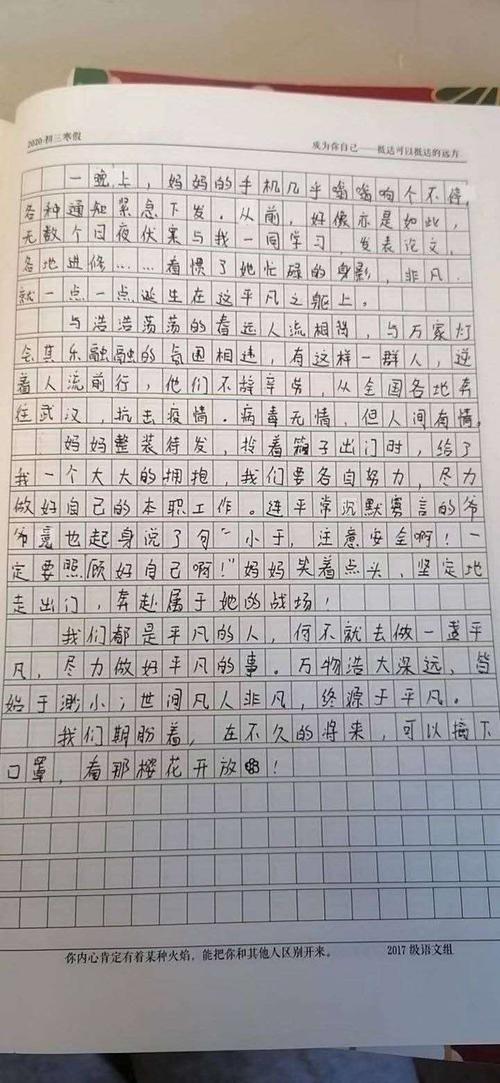 2020·初三寒假
成为你自己——抵达可以抵达的远方
一晚上，妈妈的手机几乎嗡嗡响个不停，
各种通知紧急下发。从前，好像亦是如此，
无数个日夜伏案与我一同学习、发表论文，
各地进修……看惯了她忙碌的身影，非凡
就一点一点诞生在这平凡之躯上。
与浩浩荡荡的春运人流相背，与万家灯
会其乐融融的氛围相违，有这样一群人，逆
着人流前行，他们不辞辛劳，从全国各地奔
往武汉，抗击疫情。病毒无情，但人间有情。
妈妈整装待发，拎着箱子出门时，给了
我一个大大的拥抱，我们要各自努力，尽力
做好自己的本职工作。连平常沉默寡言的爷
爷竟也起身说了句“小于，注意安全啊！一
定要照顾好自己啊！”妈妈笑着点头，坚定地
走出门，奔赴属于她的战场！
我们都是平凡的人，何不就去做一盏平
凡，尽力做好平凡的事。万物浩大深远，皆
始于渺小；世间凡人非凡，终源于平凡。
我们期盼着，在不久的将来，可以摘下
口罩，看那樱花开放！
你内心肯定有着某种火焰，能把你和其他人区别开来。
2017级语文组